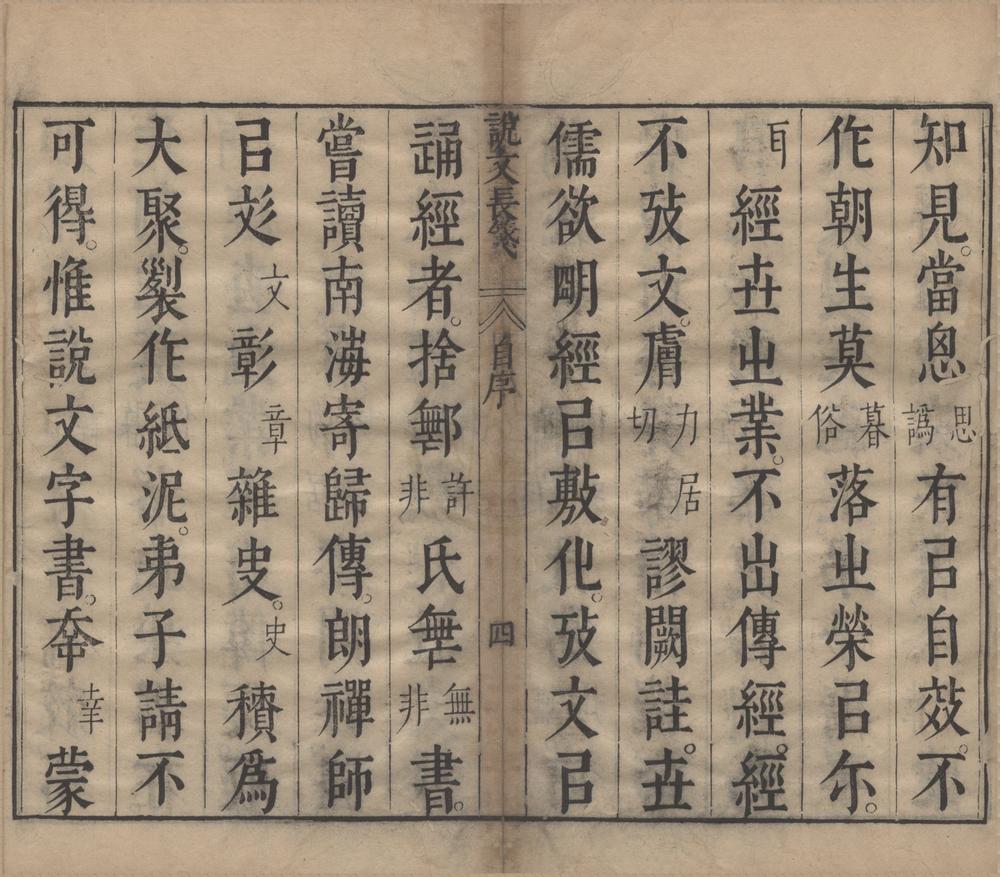 知見。當恖思譌有㠯自效。不
作朝生莫暮俗落㞢榮㠯尒。
耳經卋㞢業。不出傳經。經
不攷文。膚力居切謬闕註。卋
儒欲朙經㠯敷化。攷文㠯
說文長箋 自序 四
誦經者。捨鄦許非氏無非書。
嘗讀南海寄歸傳。朗禪師
㠯彣文彰章雜叓。史積爲
大聚。製作紙泥。弟子請不
可得。惟說文字書。幸蒙